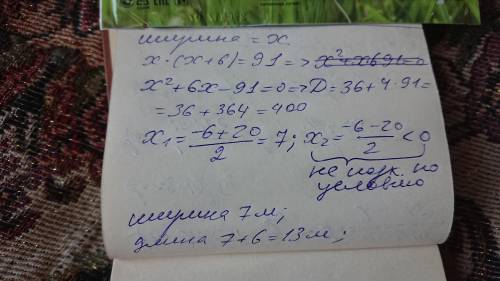 ширина = x.
x·(x+6)=91=> x²+x6 91=0
x²+6x-91=0=>D=36+4·91=
=36+364=400
x₁=(-6+20)/2=7; x₂=(-6-20)/2<0
не подх. по
условию
ширина 7м;
длина 7+6=13м;